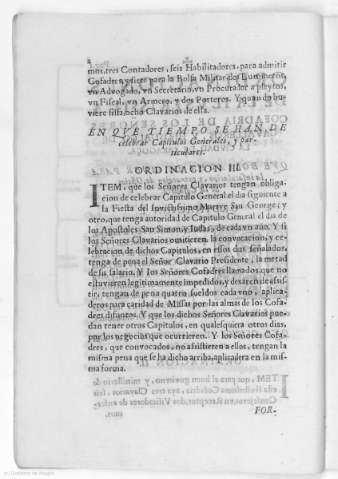 2
mos, tres Contadores, seis Habilitadores, para admitir
Cofadres, y siete para la Bolsa Militar dos Limosneros,
vn Advogado, vn Secretario, vn Procurador à pleytos,
vn Fiscal, vn Armero, y dos Porteros. Y quando hu-
viere
Clavarios de ella.
EN QVE TIEMPO SE HAN DE
celebrar Capitulos Generales, y par-
ticulares.
ORDINACION III.
ITEM, que los Señores Clavarios tengan obliga-
cion de celebrar Capitulo General el dia siguiente a
la Fiesta del Invictissimo Martyr San George; y
otro, que tenga autoridad de Capitulo General el dia de
los Apostoles San Simon, y Iudas, de cada vn año. Y si
los Señores Clavarios omitieren la convocacion, y ce-
lebracion de dichos Capitulos, en essos dias señalados,
tenga de pena el Señor Clavario Presidente, la metad
de su salario. Y los Señores Cofadres llamados, que no
estuvieren legitimamente impedidos, y dexaren de assis-
tir, tengan de pena quatro sueldos cada vno, aplica-
deros para caridad de Missas por las almas de los Cofa-
dres difuntos. Y que los dichos Señores Clavarios pue-
dan tener otros Capitulos, en qualesquiera otros dias,
por los negocios que ocurrieren. Y los Señores Cofa-
dres, que convocados, no assistieren a ellos, tengan la
misma pena que se ha dicho arriba, aplicadera en la mis-
ma forma.
FOR-